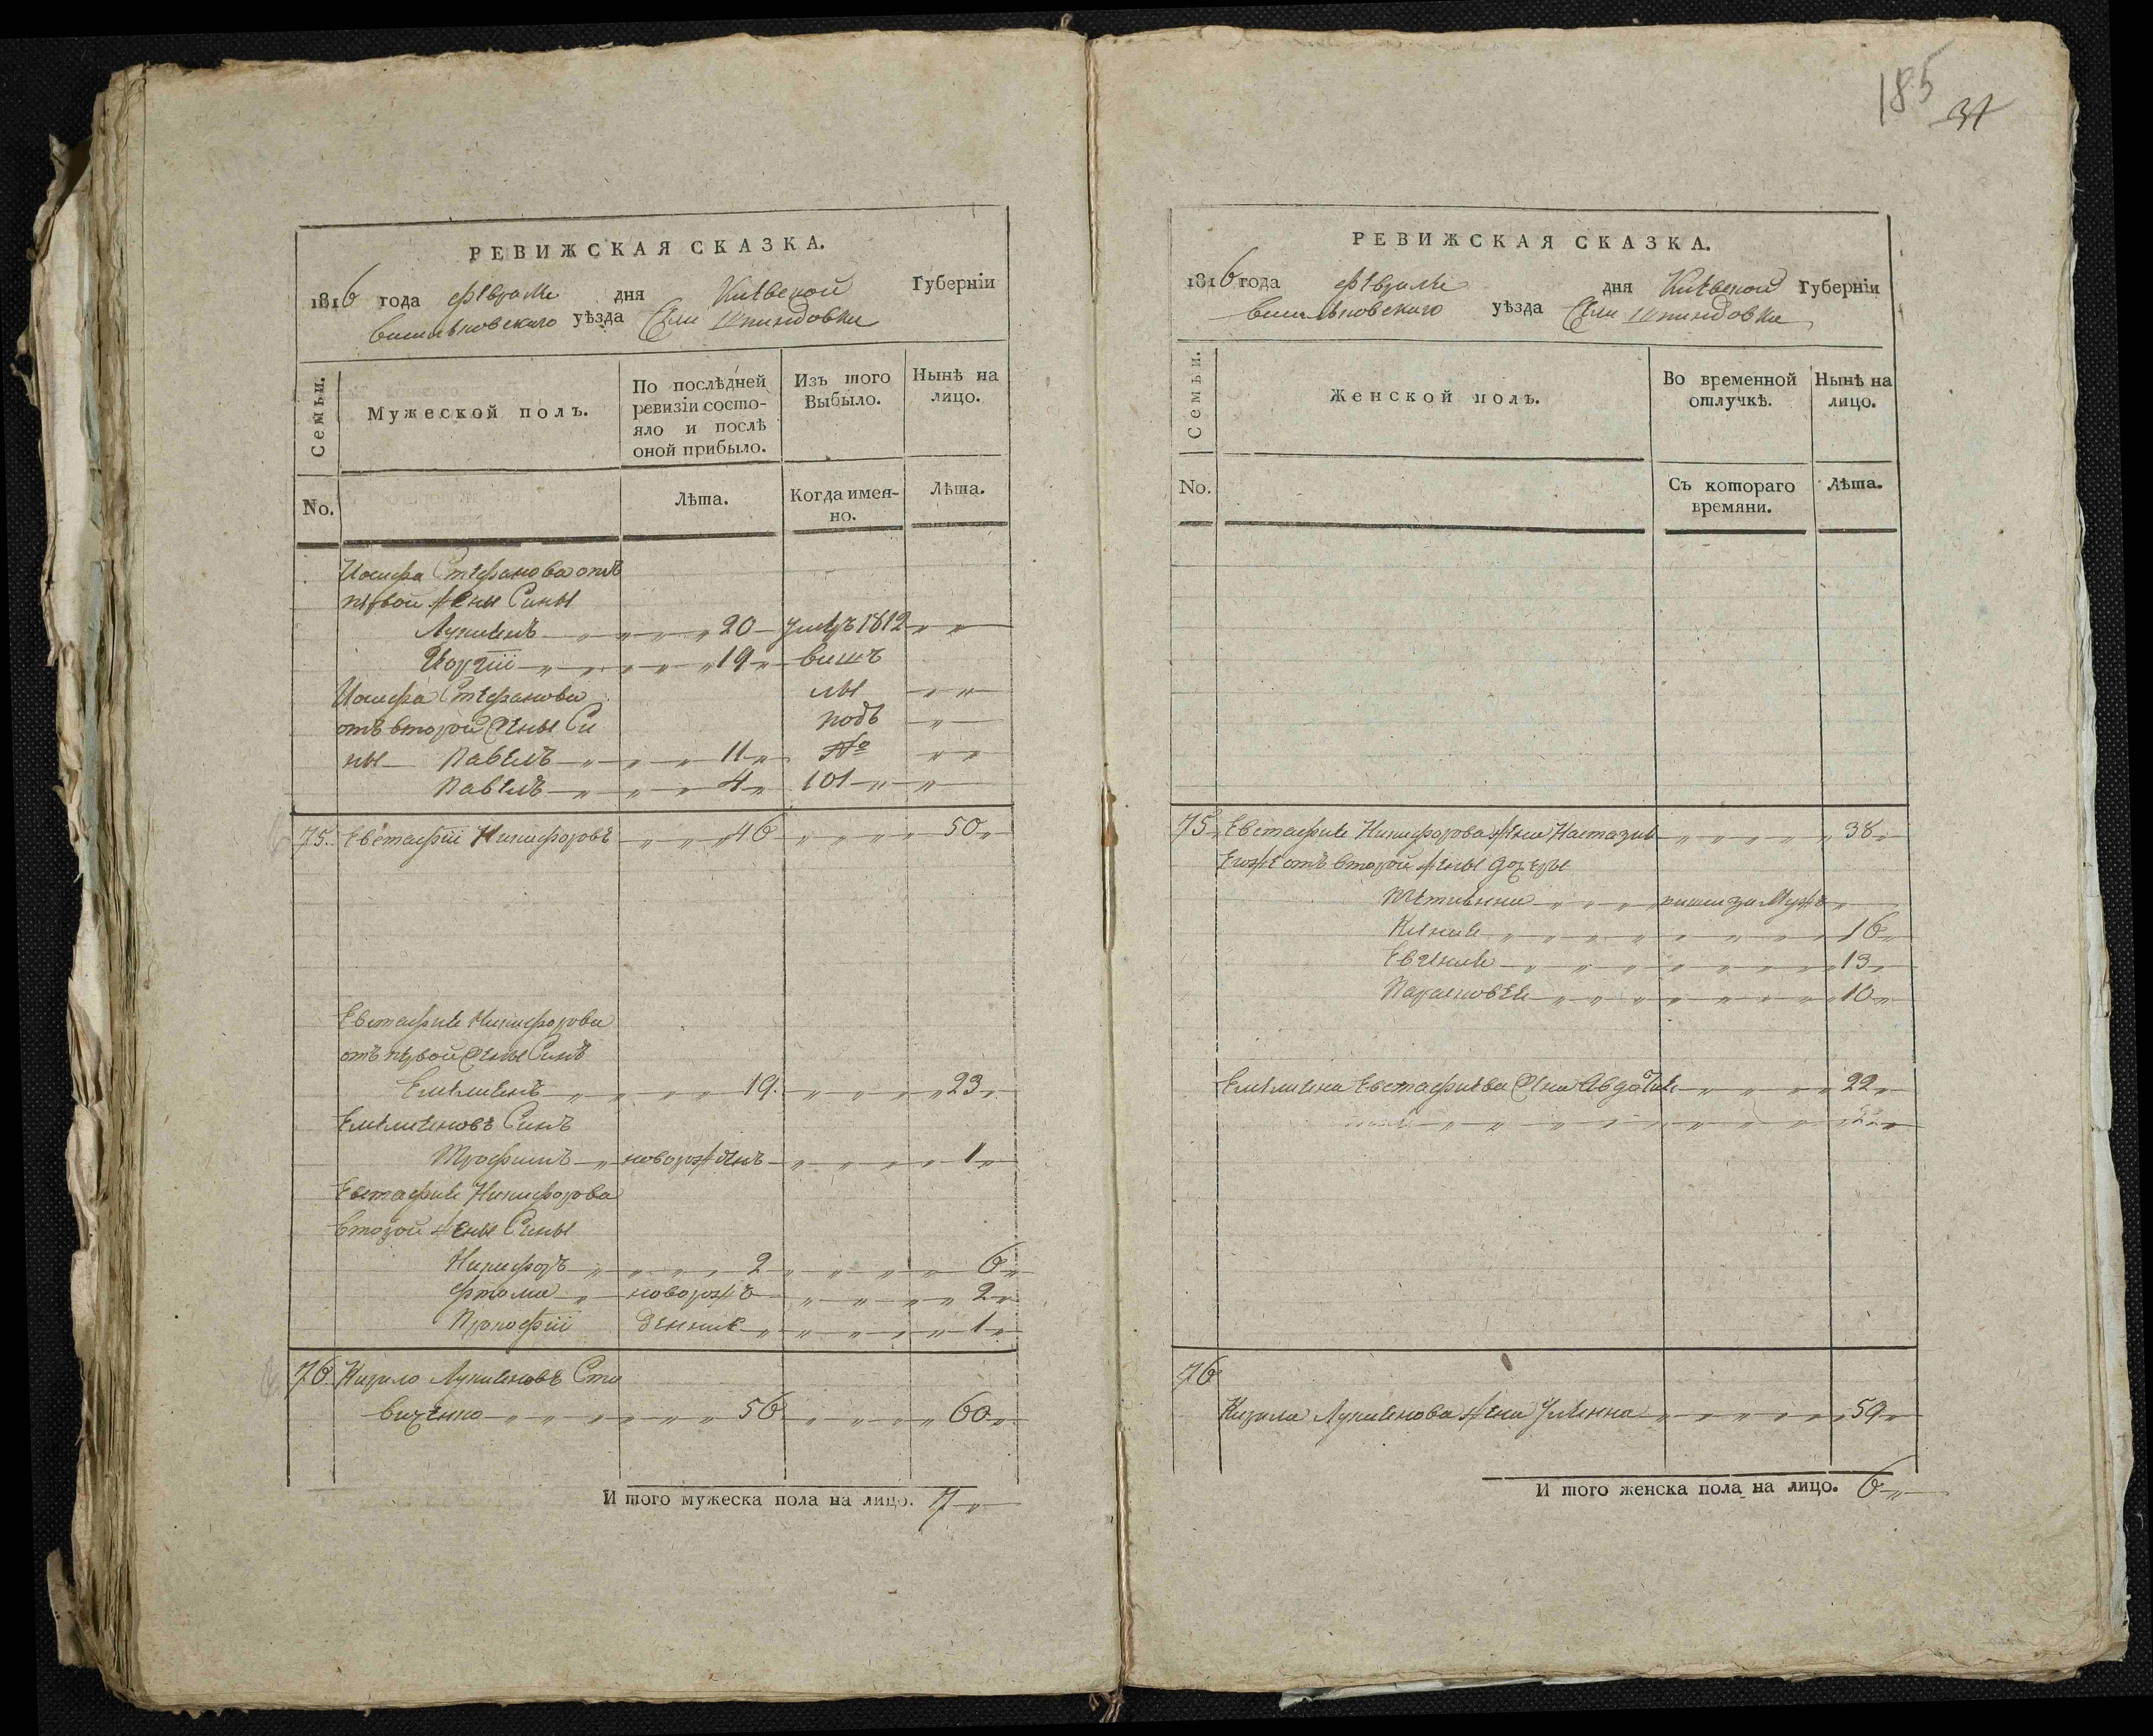 185
31
РЕВИЖСКАЯ СКАЗКА.
1816 года февраля дня Кіевской Губерніи
Васильковскаго уѣзда Села Шпиндовки
Семьи.
Мужеской полъ.
По послѣдней ревизіи состояло и послѣ оной прибыло.
Изъ того Выбыло.
Нынѣ на лицо.
No.
Лѣта.
Когда имен-
но.
Лѣта.
Иосифа Стефанова отъ
первой жены Сины
Лукиянъ 20 1812
19 вишъ
Иосифа Стефанова лы
отъ второй жены Си подъ
ны Павелъ 11 №
Павелъ 4 101
75. Евстафій Никифоровъ 46 50
Евстафия Никифорова
отъ первой жены Синъ
Емелиянъ 19. 23
Емелияновъ Синъ
Трофимъ новорожденъ 1
Евстафия Никифорова
второй жены Сины
Никифоръ 2 6
Фтома новорож 2
Прокофій денние 1
76. Кирило Лукияновъ Ста
виченко 56 60
И того мужеска пола на лицо. 7
РЕВИЖСКАЯ СКАЗКА.
1816 года февраля дня Кіевской Губерніи
Васильковскаго уѣзда Села Шпиндовки
Семьи.
Женской полъ.
Во временной отлучкѣ.
Нынѣ на лицо.
No.
Съ котораго времяни.
Лѣта.
75 Евстафия Никифорова жена Настазия 38
Егожъ отъ второй жены дочеры
Тетияна пошла за Мужъ
Ксения 16
Евгения 13
Парасковея 10
Емелияна Евстафиева жена Авдотия 22
76
Кирила Лукиянова жена Улияна 59
И того женска пола на лицо. 6